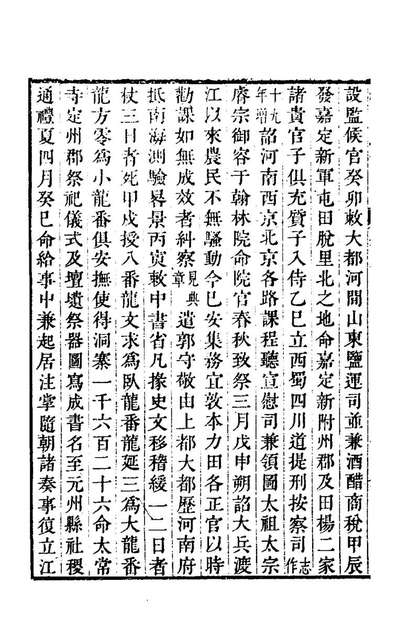 設監候官癸卯敕大都河間山東鹽運司並兼酒醋商稅甲辰
發嘉定新軍屯田脫里北之地命嘉定新附州郡及田楊二家
諸貴官子俱充質子入侍乙巳立西蜀四川道提刑按察司志作
十九年增詔河南西京北京各路課程聽宣慰司兼領圖太祖太宗
睿宗御容于翰林院命院官春秋致祭三月戊申朔詔大兵渡
江以來農民不無騷動今已安集務宜敦本力田各正官以時
勸課如無成效者糾察見典章遣郭守敬由上都大都歷河南府
抵南海測驗晷景丙寅敕中書省凡掾史文移稽緩一二日者
杖三日者死甲戌授八番龍文求為臥龍番龍延三為大龍番
龍方零為小龍番俱安撫使得洞寨一千六百二十六命太常
寺定州郡祭祀儀式及壇壝祭器圖寫成書名至元州縣社稷
通禮夏四月癸巳命給事中兼起居注掌隨朝諸奏事復立江